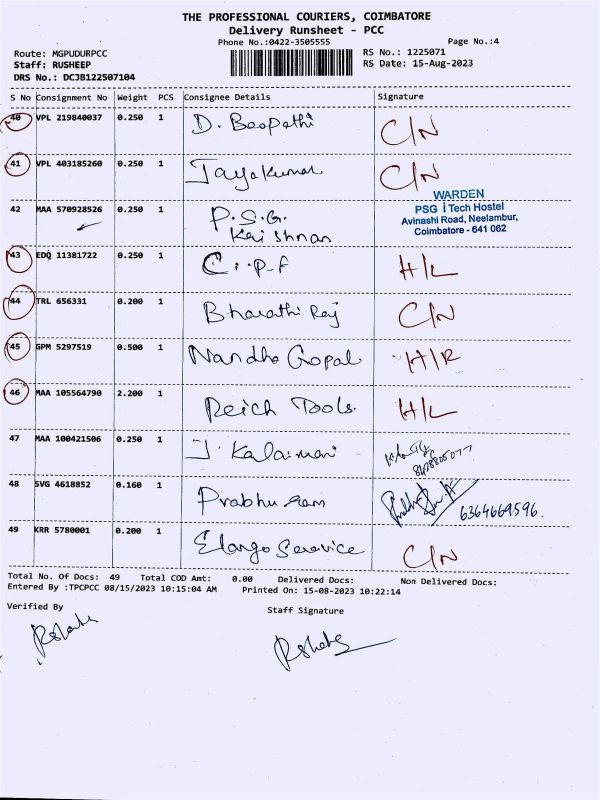 THE PROFESSIONAL COURIERS, COIMBATORE
Delivery Runsheet - PCC
Phone No.:0422-3505555 Page No.:4
Route: MGPUDURPCC RS No.: 1225071
Staff: RUSHEEP RS Date: 15-Aug-2023
DRS No.: DCJB122507104
S No Consignment No Weight PCS Consignee Details Signature
40 VPL 219840037 0.250 1 D. Boopathi C/N
41 VPL 403185260 0.250 1 Jayakumar C/N
WARDEN
PSG iTech Hostel
Avinashi Road, Neelambur,
Coimbatore - 641 062
42 MAA 570928526 0.250 1 P.S.G.
Kaishnan
43 EDQ 11381722 0.250 1 C.P.F H/L
44 TRL 656331 0.200 1 Bharathi Raj C/N
45 GPM 5297519 0.500 1 Nandha Gopal H/R
46 MAA 105564790 2.200 1 Reich Tools. H/L
47 MAA 100421506 0.250 1 J. Kalaimani
48 SVG 4618852 0.160 1 Prabhu Ram 6364669596.
49 KRR 5780001 0.200 1 Elango Service C/N
Total No. Of Docs: 49 Total COD Amt: 0.00 Delivered Docs: Non Delivered Docs:
Entered By :TPCPCC 08/15/2023 10:15:04 AM Printed On: 15-08-2023 10:22:14
Verified By Staff Signature